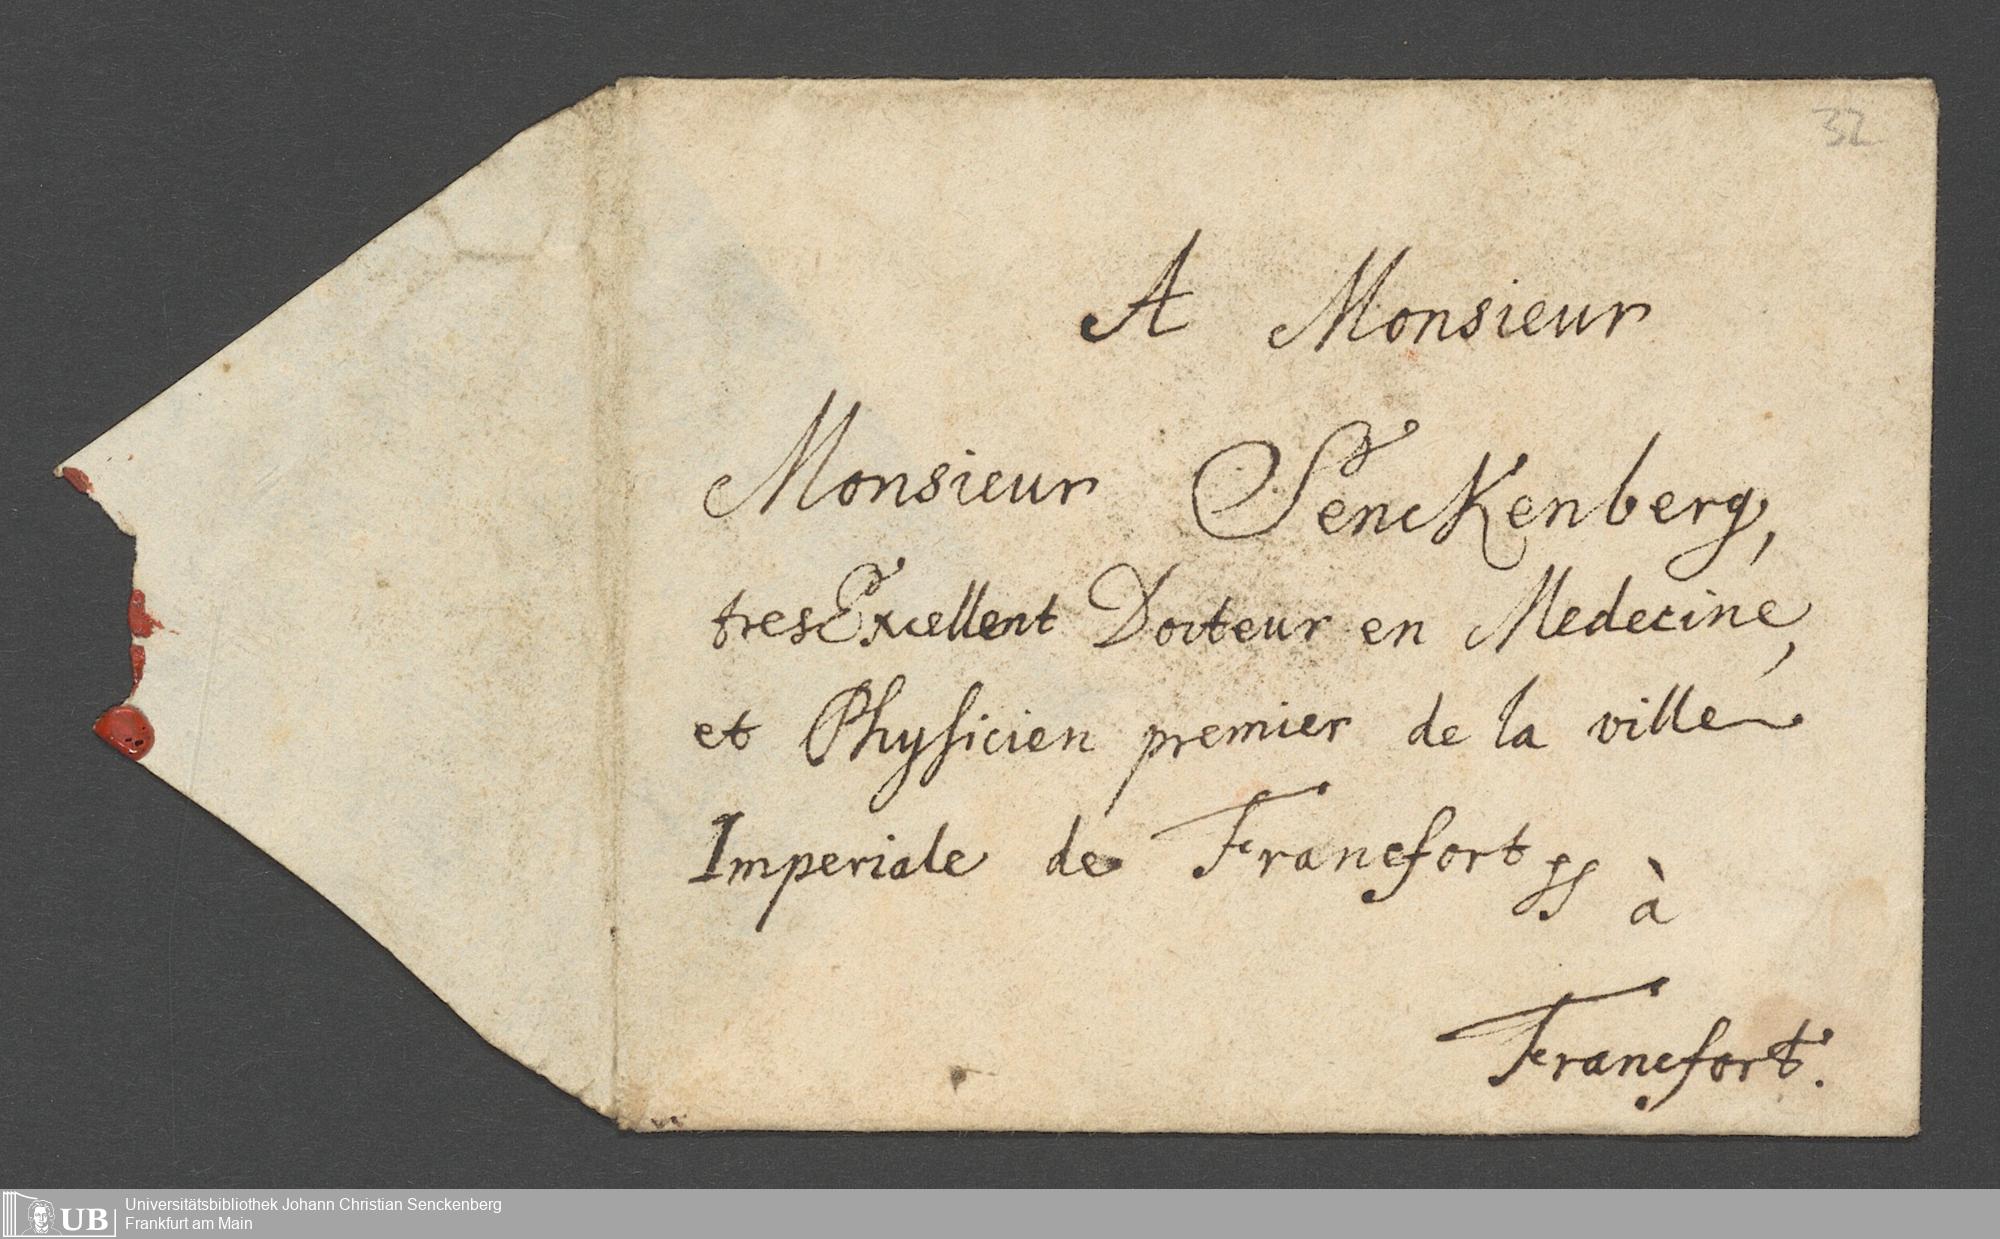 32
A Monsieur
Monsieur Senckenberg,
tres Excellent Docteur en Medecine,
et Physicien premier de la ville
Imperiale de Francfort à
Francfort.
Universitätsbibliothek Johann Christian Senckenberg
Frankfurt am Main
UB